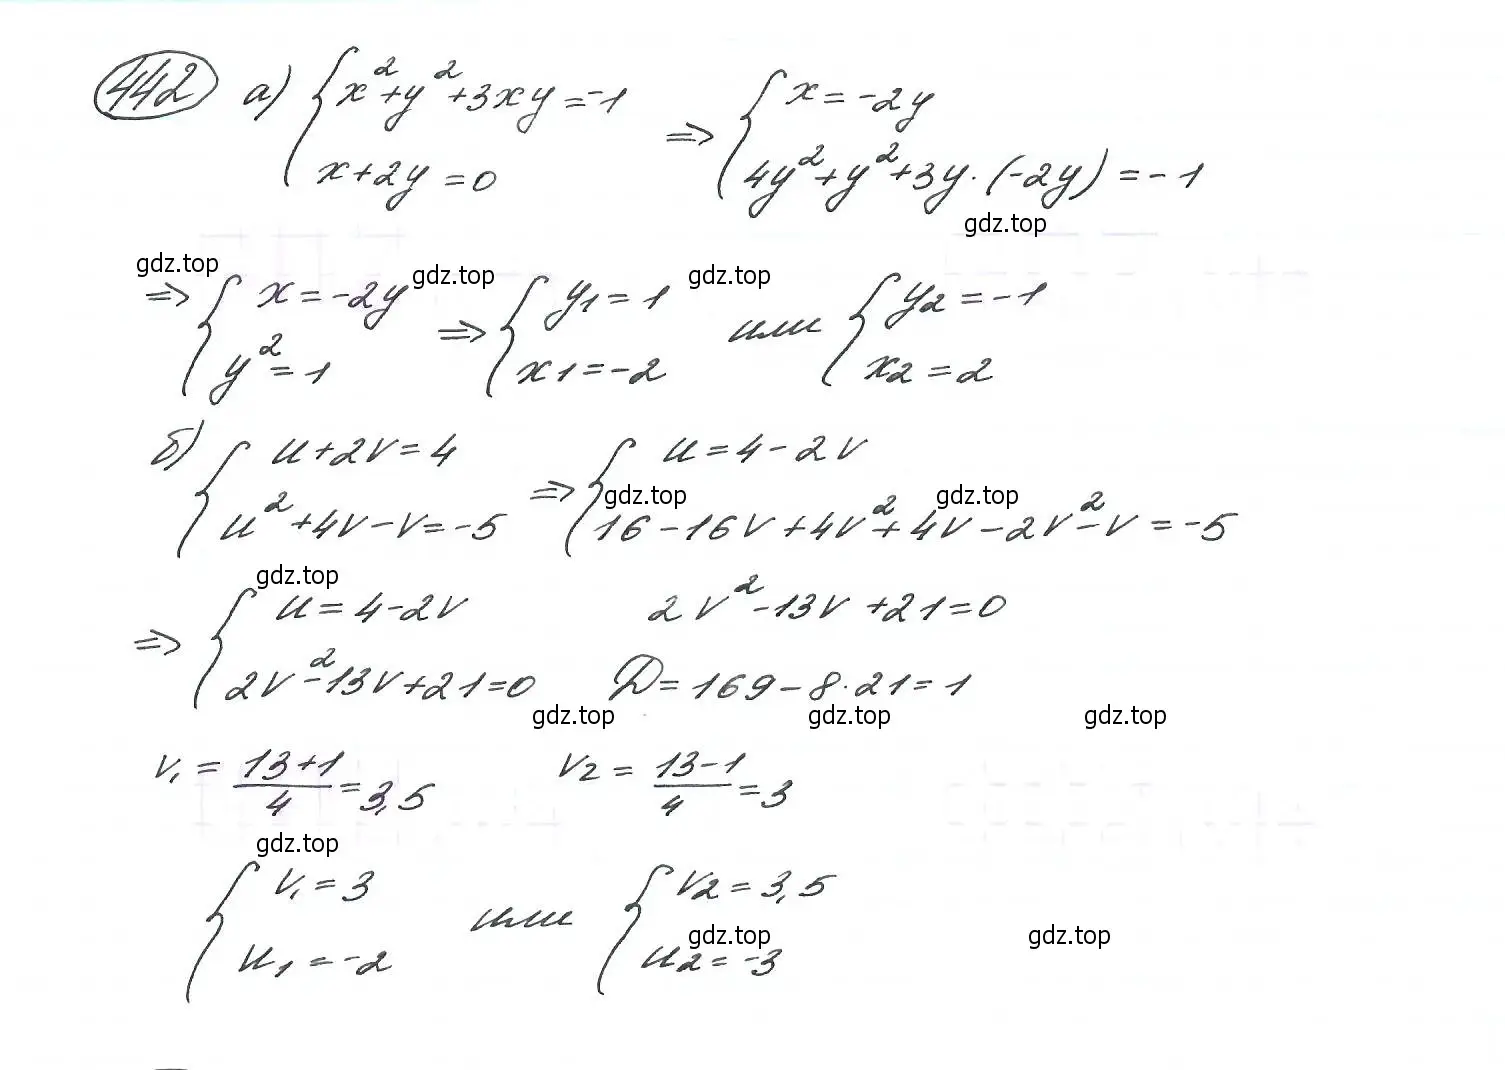 442 а) { x²+y²+3xy=-1 ; x+2y=0 ⇒ { x=-2y ; 4y²+y²+3y·(-2y)=-1
gdz.top
gdz.top gdz.top gdz.top
⇒ { x=-2y ; y²=1 ⇒ { y1=1 ; x1=-2 или { y2=-1 ; x2=2
б) { u+2v=4 ; u²+4v-v=-5 ⇒ { u=4-2v ; 16-16v+4v²+4v-2v²-v=-5
gdz.top gdz.top
gdz.top
⇒ { u=4-2v ; 2v²-13v+21=0
2v²-13v+21=0
D=169-8·21=1
gdz.top gdz.top gdz.top
v₁=(13+1)/4=3,5 v2=(13-1)/4=3
gdz.top
{ v₁=3 ; u₁=-2 или { v2=3,5 ; u2=-3
gdz.top gdz.top